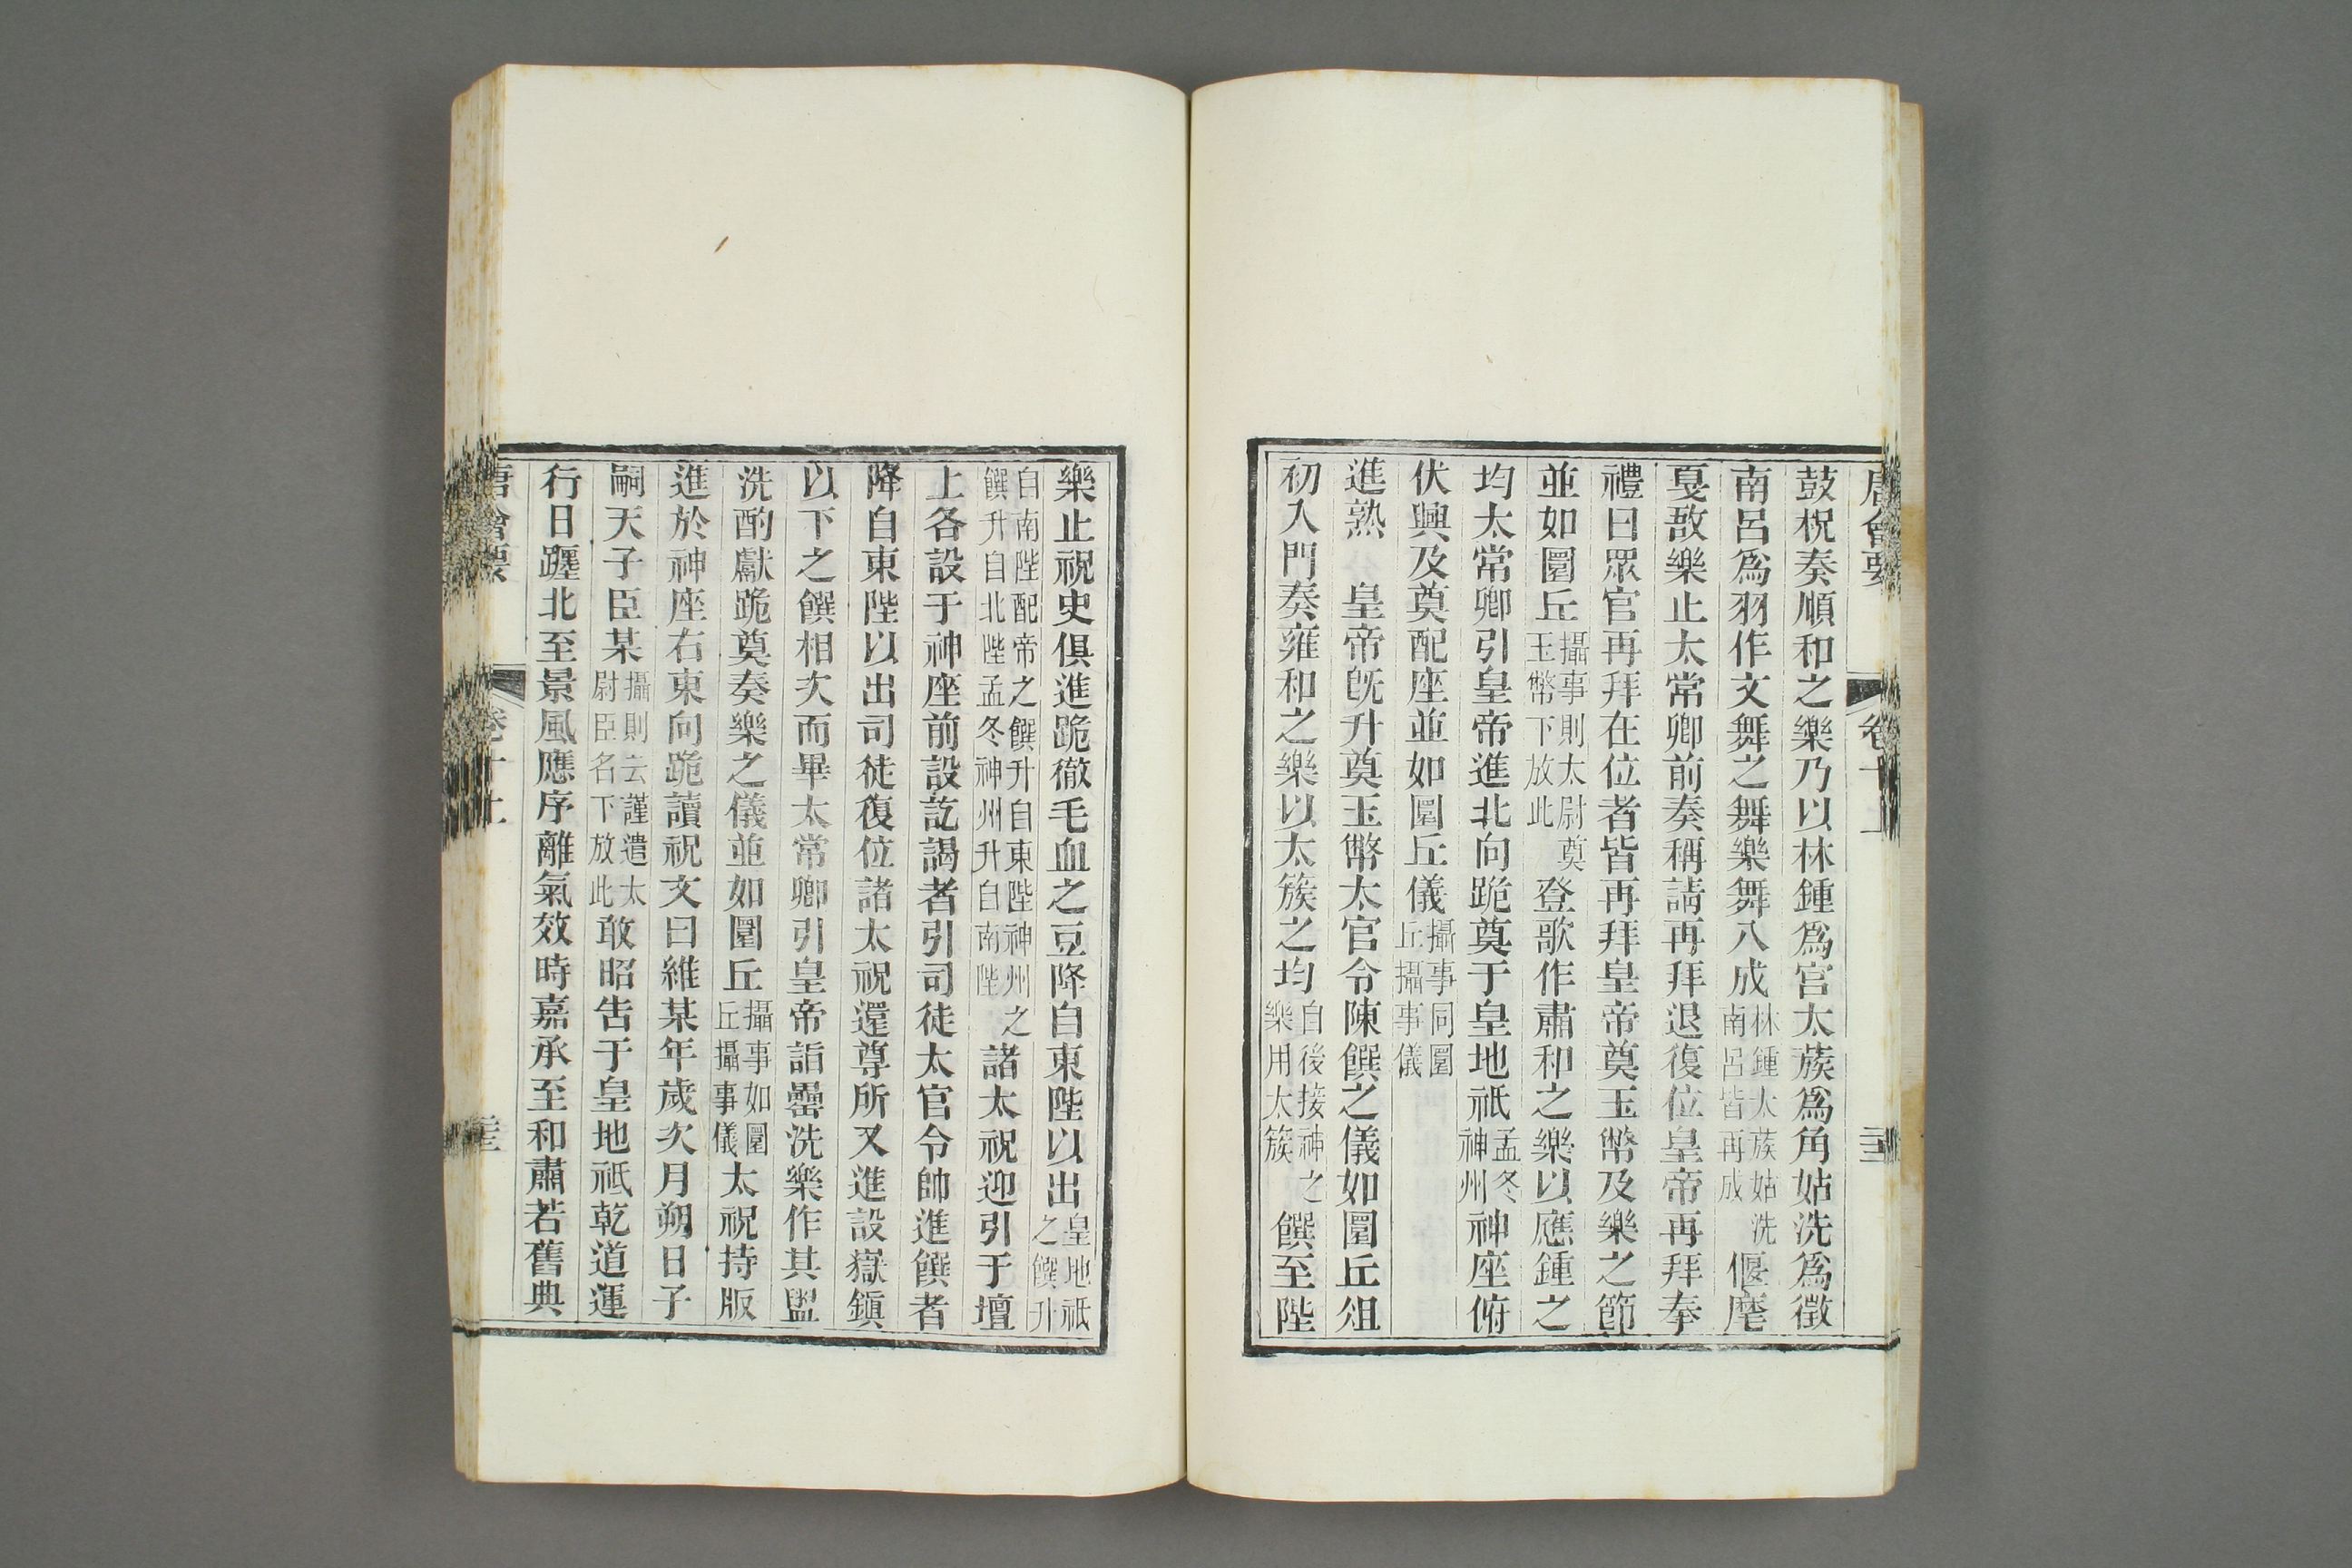 唐會要　卷十上
鼓柷奏順和之樂乃以林鍾爲宮太蔟爲角姑洗爲徵
南呂爲羽作文舞之舞樂舞八成林鍾太蔟姑洗南呂皆再成偃麾
戛敔樂止太常卿前奏稱請再拜退復位皇帝再拜奉
禮曰眾官再拜在位者皆再拜皇帝奠玉幣及樂之節
並如圜丘攝事則太尉奠玉幣下放此登歌作肅和之樂以應鍾之
均太常卿引皇帝進北向跪奠于皇地祇孟冬神州神座俯
伏興及奠配座並如圜丘儀攝事同圜丘攝事儀
進熟　皇帝既升奠玉幣太官令陳饌之儀如圜丘俎
初入門奏雍和之樂以太簇之均自後接神之樂用太簇饌至陛
樂止祝史俱進跪徹毛血之豆降自東陛以出皇地祇之饌升
自南陛配帝之饌升自東陛神州之饌升自北陛孟冬神州升自南陛諸太祝迎引于壇
上各設于神座前設訖謁者引司徒太官令帥進饌者
降自東陛以出司徒復位諸太祝還尊所又進設嶽鎮
以下之饌相次而畢太常卿引皇帝詣罍洗樂作其盥
洗酌獻跪奠奏樂之儀並如圜丘攝事如圜丘攝事儀太祝持版
進於神座右東向跪讀祝文曰維某年歲次月朔日子
嗣天子臣某攝則云謹遣太尉臣名下放此敢昭告于皇地祇乾道運
行日躔北至景風應序離氣效時嘉承至和肅若舊典
唐會要　卷十上